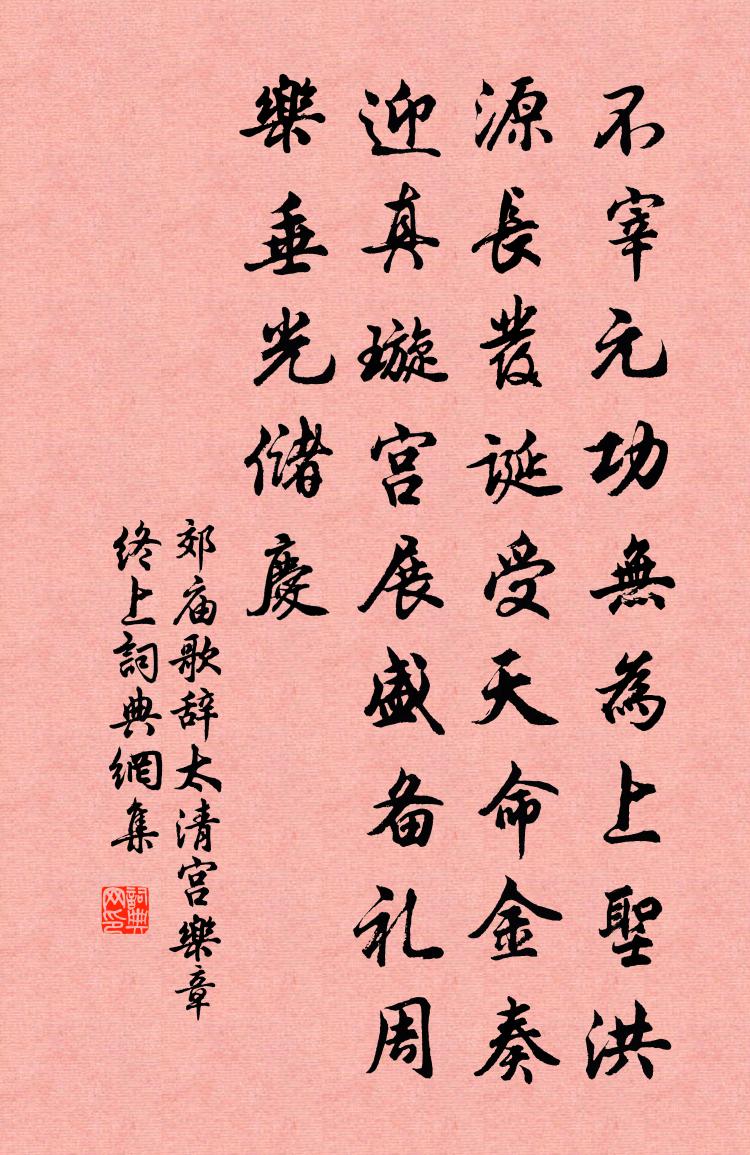 不宰元功無為上聖洪
源長發誕受天命金奏
迎真璇宫展盛备礼周
樂垂光儲慶
郊庙歌辞太清宫樂章
终上詞典網集
詞典网印